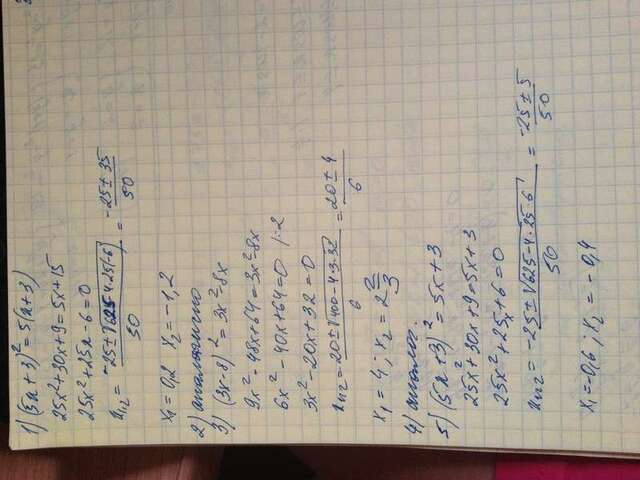 1) (5x+3)² = 5(x+3)
25x²+30x+9=5x+15
25x²+25x-6=0
x₁,₂ = -25±√(625-4·25(-6)) / 50 = -25±35 / 50
x₁=0,2 x₂=-1,2
2) аналогично
3) (3x-8)² = 3x²-8x
9x²-48x+64=3x²-8x
6x²-40x+64=0 /:2
3x²-20x+32=0
x₁,₂=20±√(400-4·3·32) / 6 = 20±4 / 6
x₁=4; x₂=2 2/3
4) аналог.
5) (5x+3)² = 5x+3
25x²+30x+9=5x+3
25x²+25x+6=0
x₁,₂ = -25±√(625-4·25·6) / 50 = -25±5 / 50
x₁=-0,6; x₂=-0,4